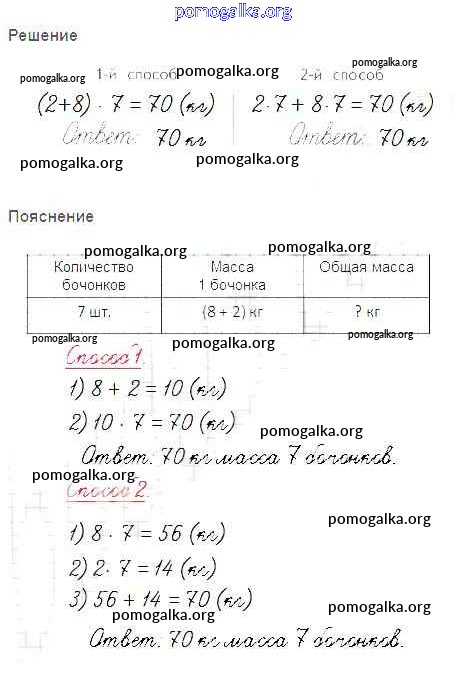 pomogalka.org
Решение
1-й способ pomogalka.org 2-й способ pomogalka.org
pomogalka.org
(2+8) · 7 = 70 (кг) 2·7 + 8·7 = 70 (кг)
Ответ: 70 кг Ответ: 70 кг
pomogalka.org pomogalka.org
Пояснение
pomogalka.org pomogalka.org
Количество бочонков Масса 1 бочонка Общая масса
7 шт. (8 + 2) кг ? кг
pomogalka.org pomogalka.org pomogalka.org
Способ 1.
1) 8 + 2 = 10 (кг)
2) 10 · 7 = 70 (кг)
pomogalka.org
Ответ: 70 кг масса 7 бочонков.
pomogalka.org
Способ 2.
pomogalka.org
1) 8 · 7 = 56 (кг)
2) 2 · 7 = 14 (кг)
3) 56 + 14 = 70 (кг)
pomogalka.org pomogalka.org
Ответ: 70 кг масса 7 бочонков.